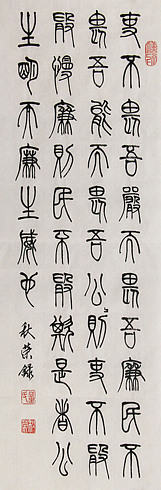 吏不畏吾嚴而畏吾廉民不
畏吾能而畏吾公則吏不敢
慢廉則民不敢欺是者公
生明而廉生威也
秋榮錄